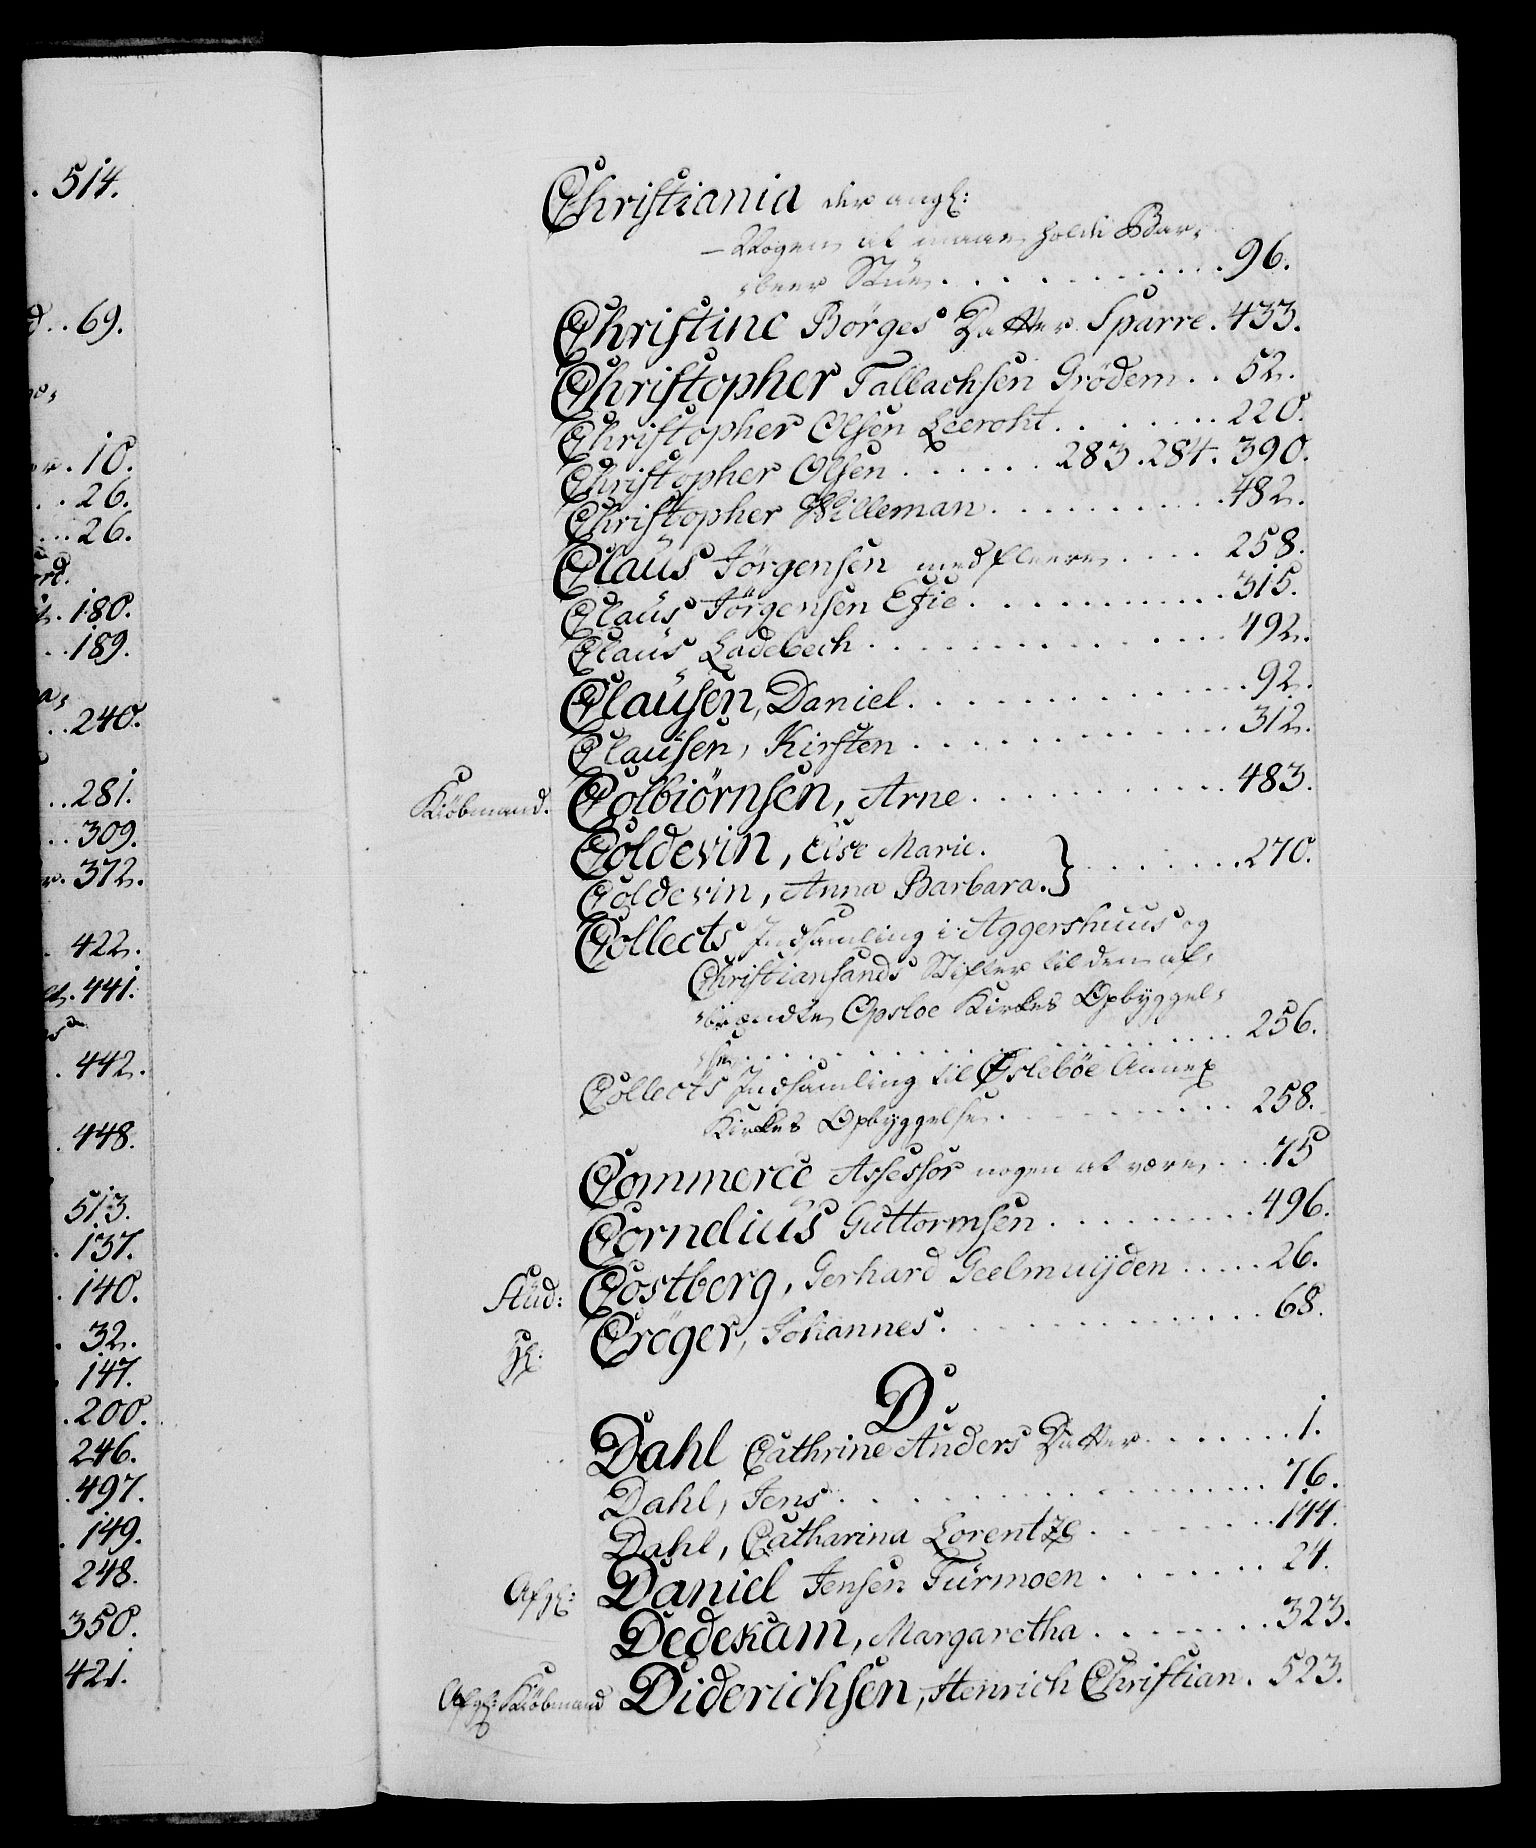 . 514.
d . . 69.
r . 10.
. . 26.
. . . 26.
ort.
. 180.
. . 189.
. . 240.
. . 281.
. . 309.
r. 372.
. 422.
. 441.
. 442.
. 448.
513.
. 137.
. 140.
. 32.
. 147.
. 200.
246.
. 497.
. 149.
248.
350.
421.
Christiania der angl:
— Nogen at maae holde Bar-
-beer Stue . . . . . . . . . . . 96.
Christine Börges Datter Sparre . 433.
Christopher Tallachsen Grödem . . 52.
Christopher Olsen Leeroht . . . . . . . 220.
Christopher Olsen . . . . . . 283. 284. 390.
Christopher Willeman . . . . . . . . . . 482.
Claüs Jörgensen med fleere . . . . 258.
Claüs Jörgensen Efie . . . . . . . . . . . 315.
Claüs Ladebech . . . . . . . . . . . . . . 492.
Claüsen, Daniel . . . . . . . . . . . . . . 92.
Claüsen, Kirsten . . . . . . . . . . . . . 312.
Kiöbmand. Colbiörnsen, Arne . . . . . . . . . . . 483.
Coldevin, Else Marie.
Coldevin, Anna Barbara. } . . . . . . . 270.
Collects Indsamling i Aggershuus og
Christiansands Stifter til den af-
-brændte Opsloe Kirkes Opbyggel-
-se . . . . . . . . . . . . . . . . . . . . 256.
Collects Indsamling til Øsleböe Annex
Kirkes Opbyggelse . . . . . . . . . . 258.
Commerce Assessor nogen at være . . . 75
Cornelius Guttormsen . . . . . . . . . 496.
Stüd: Costberg, Gerhard Geelmuijden . . . . . 26.
Cröger, Johannes . . . . . . . . . . . . . . 68.
D.
Dahl Cathrine Anders Datter . . . . . . . 1.
Dahl, Jens . . . . . . . . . . . . . . . . . . 76.
Dahl, Catharina Lorentze . . . . . . . . 144.
Afgl: Daniel Jensen Türmoen . . . . . . . 24.
Dedekam, Margaretha . . . . . . . . 323.
Afgl: Kiöbmand Diderichsen, Henrich Christian . 523.